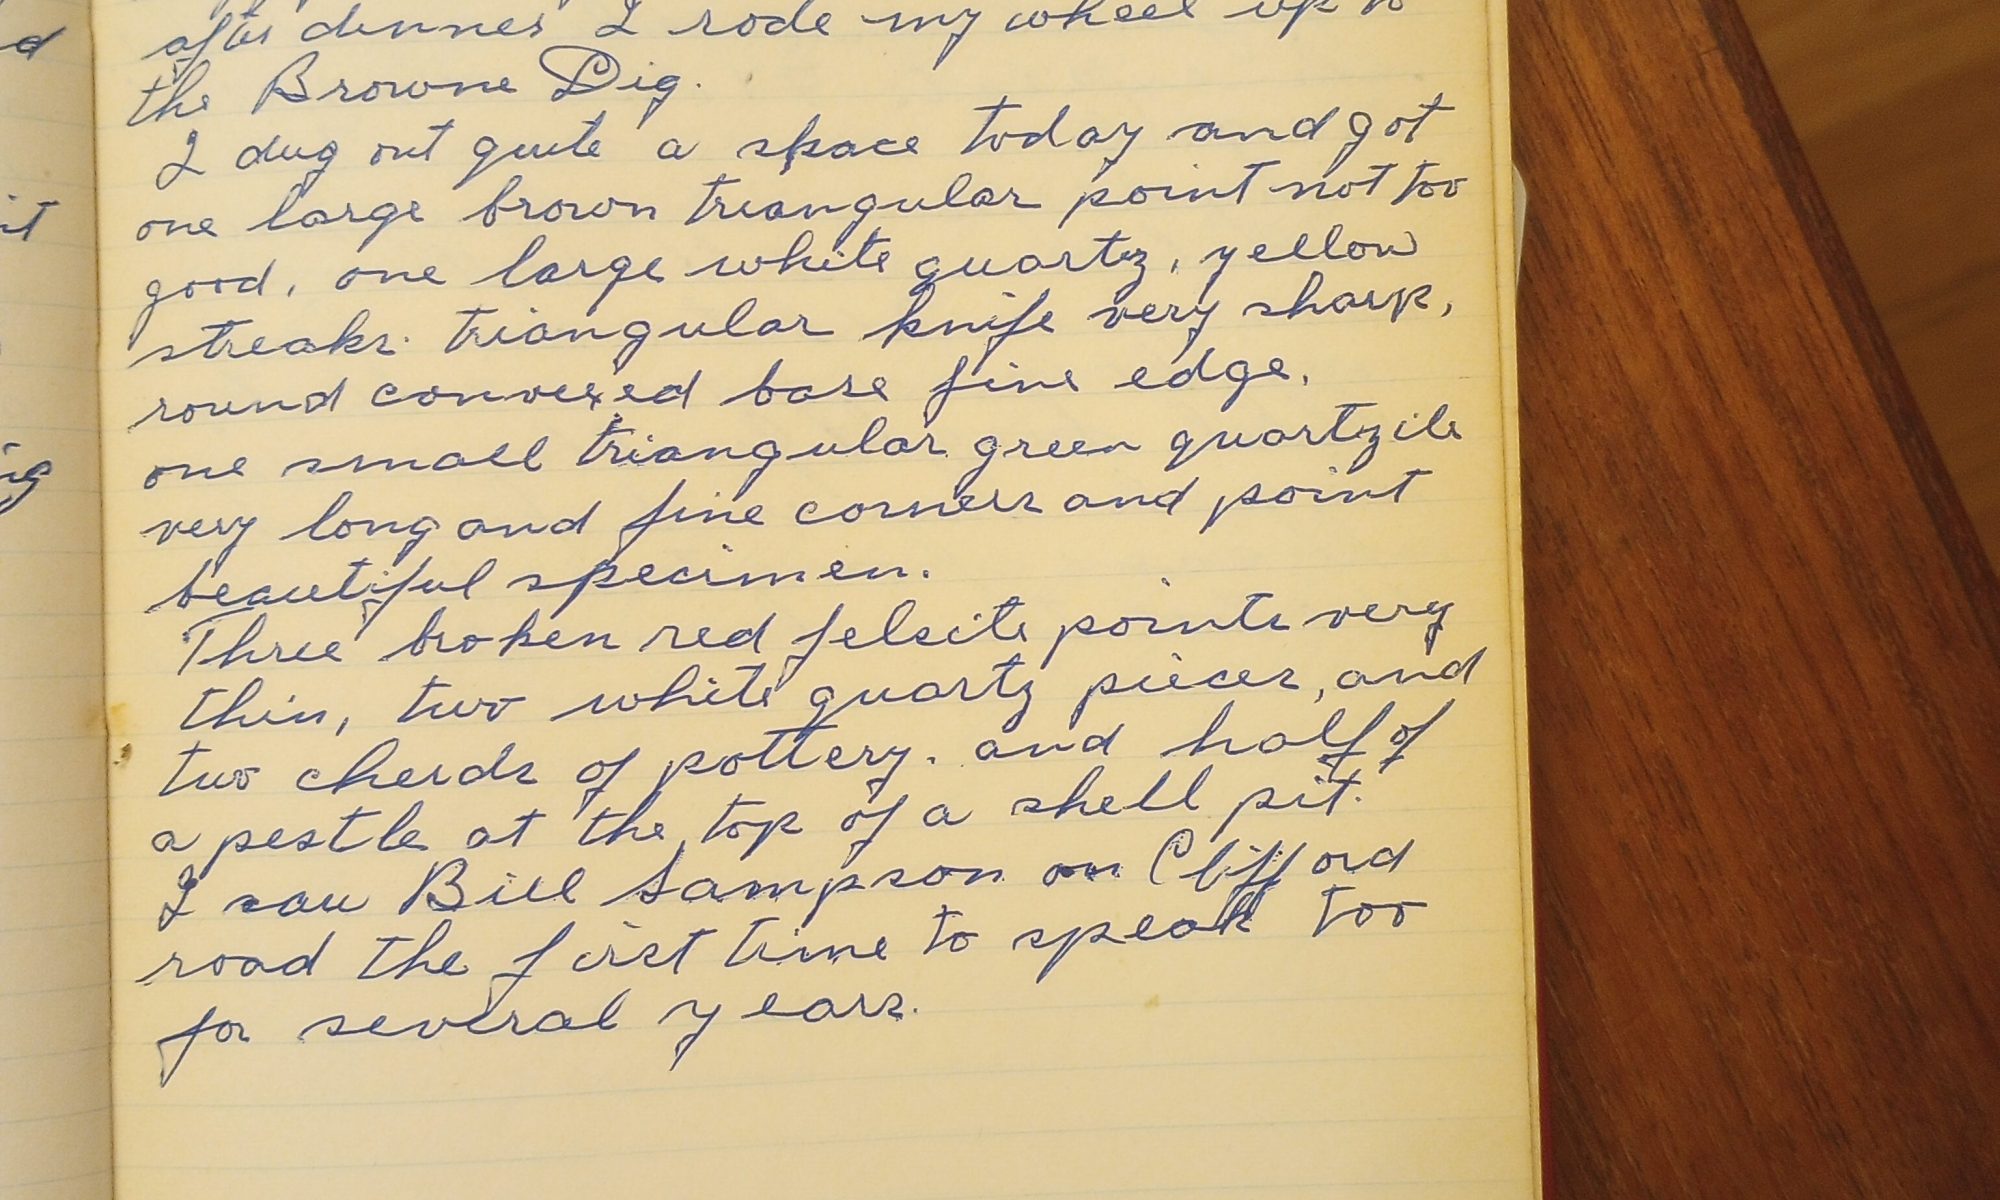 after dinner I rode my wheel up to
the Browne Dig.
I dug out quite a space today and got
one large brown triangular point not too
good, one large white quartz, yellow
streaks. triangular knife very sharp,
round convexed base fine edge,
one small triangular green quartzite
very long and fine corners and point
beautiful specimen.
Three broken red felsite points very
thin, two white quartz pieces, and
two cherds of pottery. and half of
a pestle at the top of a shell pit.
I saw Bill Sampson on Clifford
road the first time to speak too
for several years.
d
it
ng